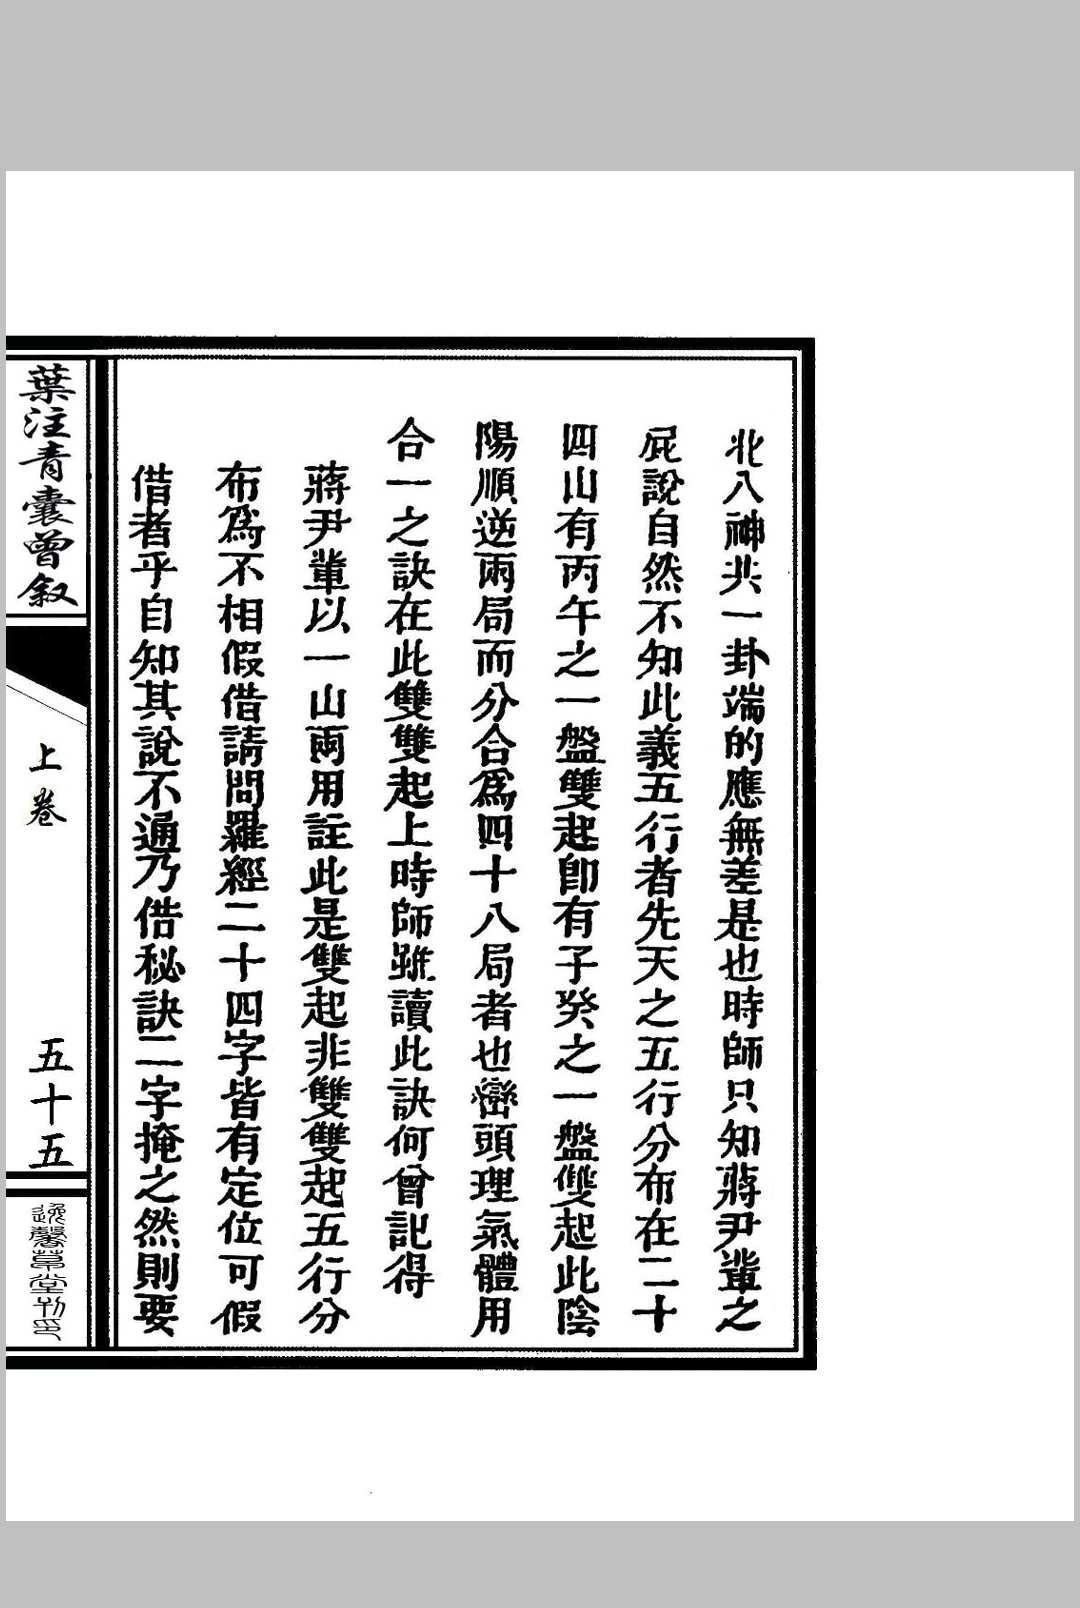 北八神共一卦端的應無差是也時師只知蔣尹輩之
屁說自然不知此義五行者先天之五行分布在二十
四山有丙午之一盤雙起卽有子癸之一盤雙起此陰
陽順逆兩局而分合為四十八局者也巒頭理氣體用
合一之訣在此雙雙起上時師雖讀此訣何曾記得
蔣尹輩以一山兩用註此是雙起非雙雙起五行分
布為不相假借請問羅經二十四字皆有定位可假
借者乎自知其說不通乃借秘訣二字掩之然則要
葉注青囊曾叙
上卷
五十五
逸馨草堂刊印